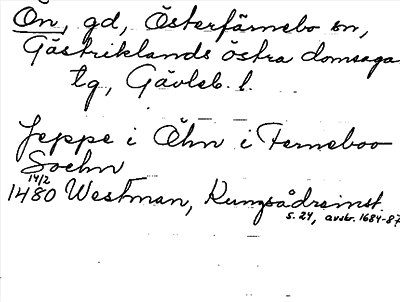 Ön, gd, Österfärnebo sn,
Gästriklands östra domsaga
tg, Gävleb. l.
Jeppe i Öhn i Ferneboo
Soehn
14/2
1480 Westman, Kungsådreinst.
s. 24, avskr. 1684-87